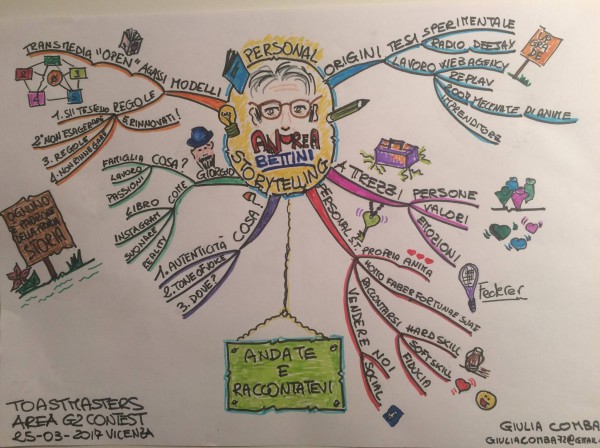 PERSONAL
STORYTELLING
ANDREA
BETTINI
ORIGINI
TESI SPERIMENTALE
LAVORO
RADIO DEEJAY
WEBAGENCY
REPLAY
2007 MECENATE DI ANIME
IMPRENDITORE
ATREZZI
PERSONE
VALORI
EMOZIONI
PERSONAL ST.
PROPRIA ANIMA
HOMO FABER FORTUNAE SUAE
RACCONTARSI
HARD SKILL
SOFT SKILL
FIDUCIA
VENDERE NOI
SOCIAL
Federer
COSA?
1. AUTENTICITÀ
2. TONE OF VOICE
3. DOVE?
GIORGIO
COSA?
FAMIGLIA
LAVORO
PASSIONI
COME
LIBRO
INSTAGRAM
SUONARE
REALITY
MODELLI
AGASI "OPEN"
TRANSMEDIA
REGOLE
1. SII TE STESSO
2. NON ESAGERARE
3. REGOLE
4. NON RINNEGARE
& RINNOVATI!
OGNUNO
È PADRONE
DELLA PROPRIA
STORIA
ANDATE
E
RACCONTATEVI
TOASTMASTERS
AREA G2 CONTEST
25-03-2017 VICENZA
GIULIA COMBA